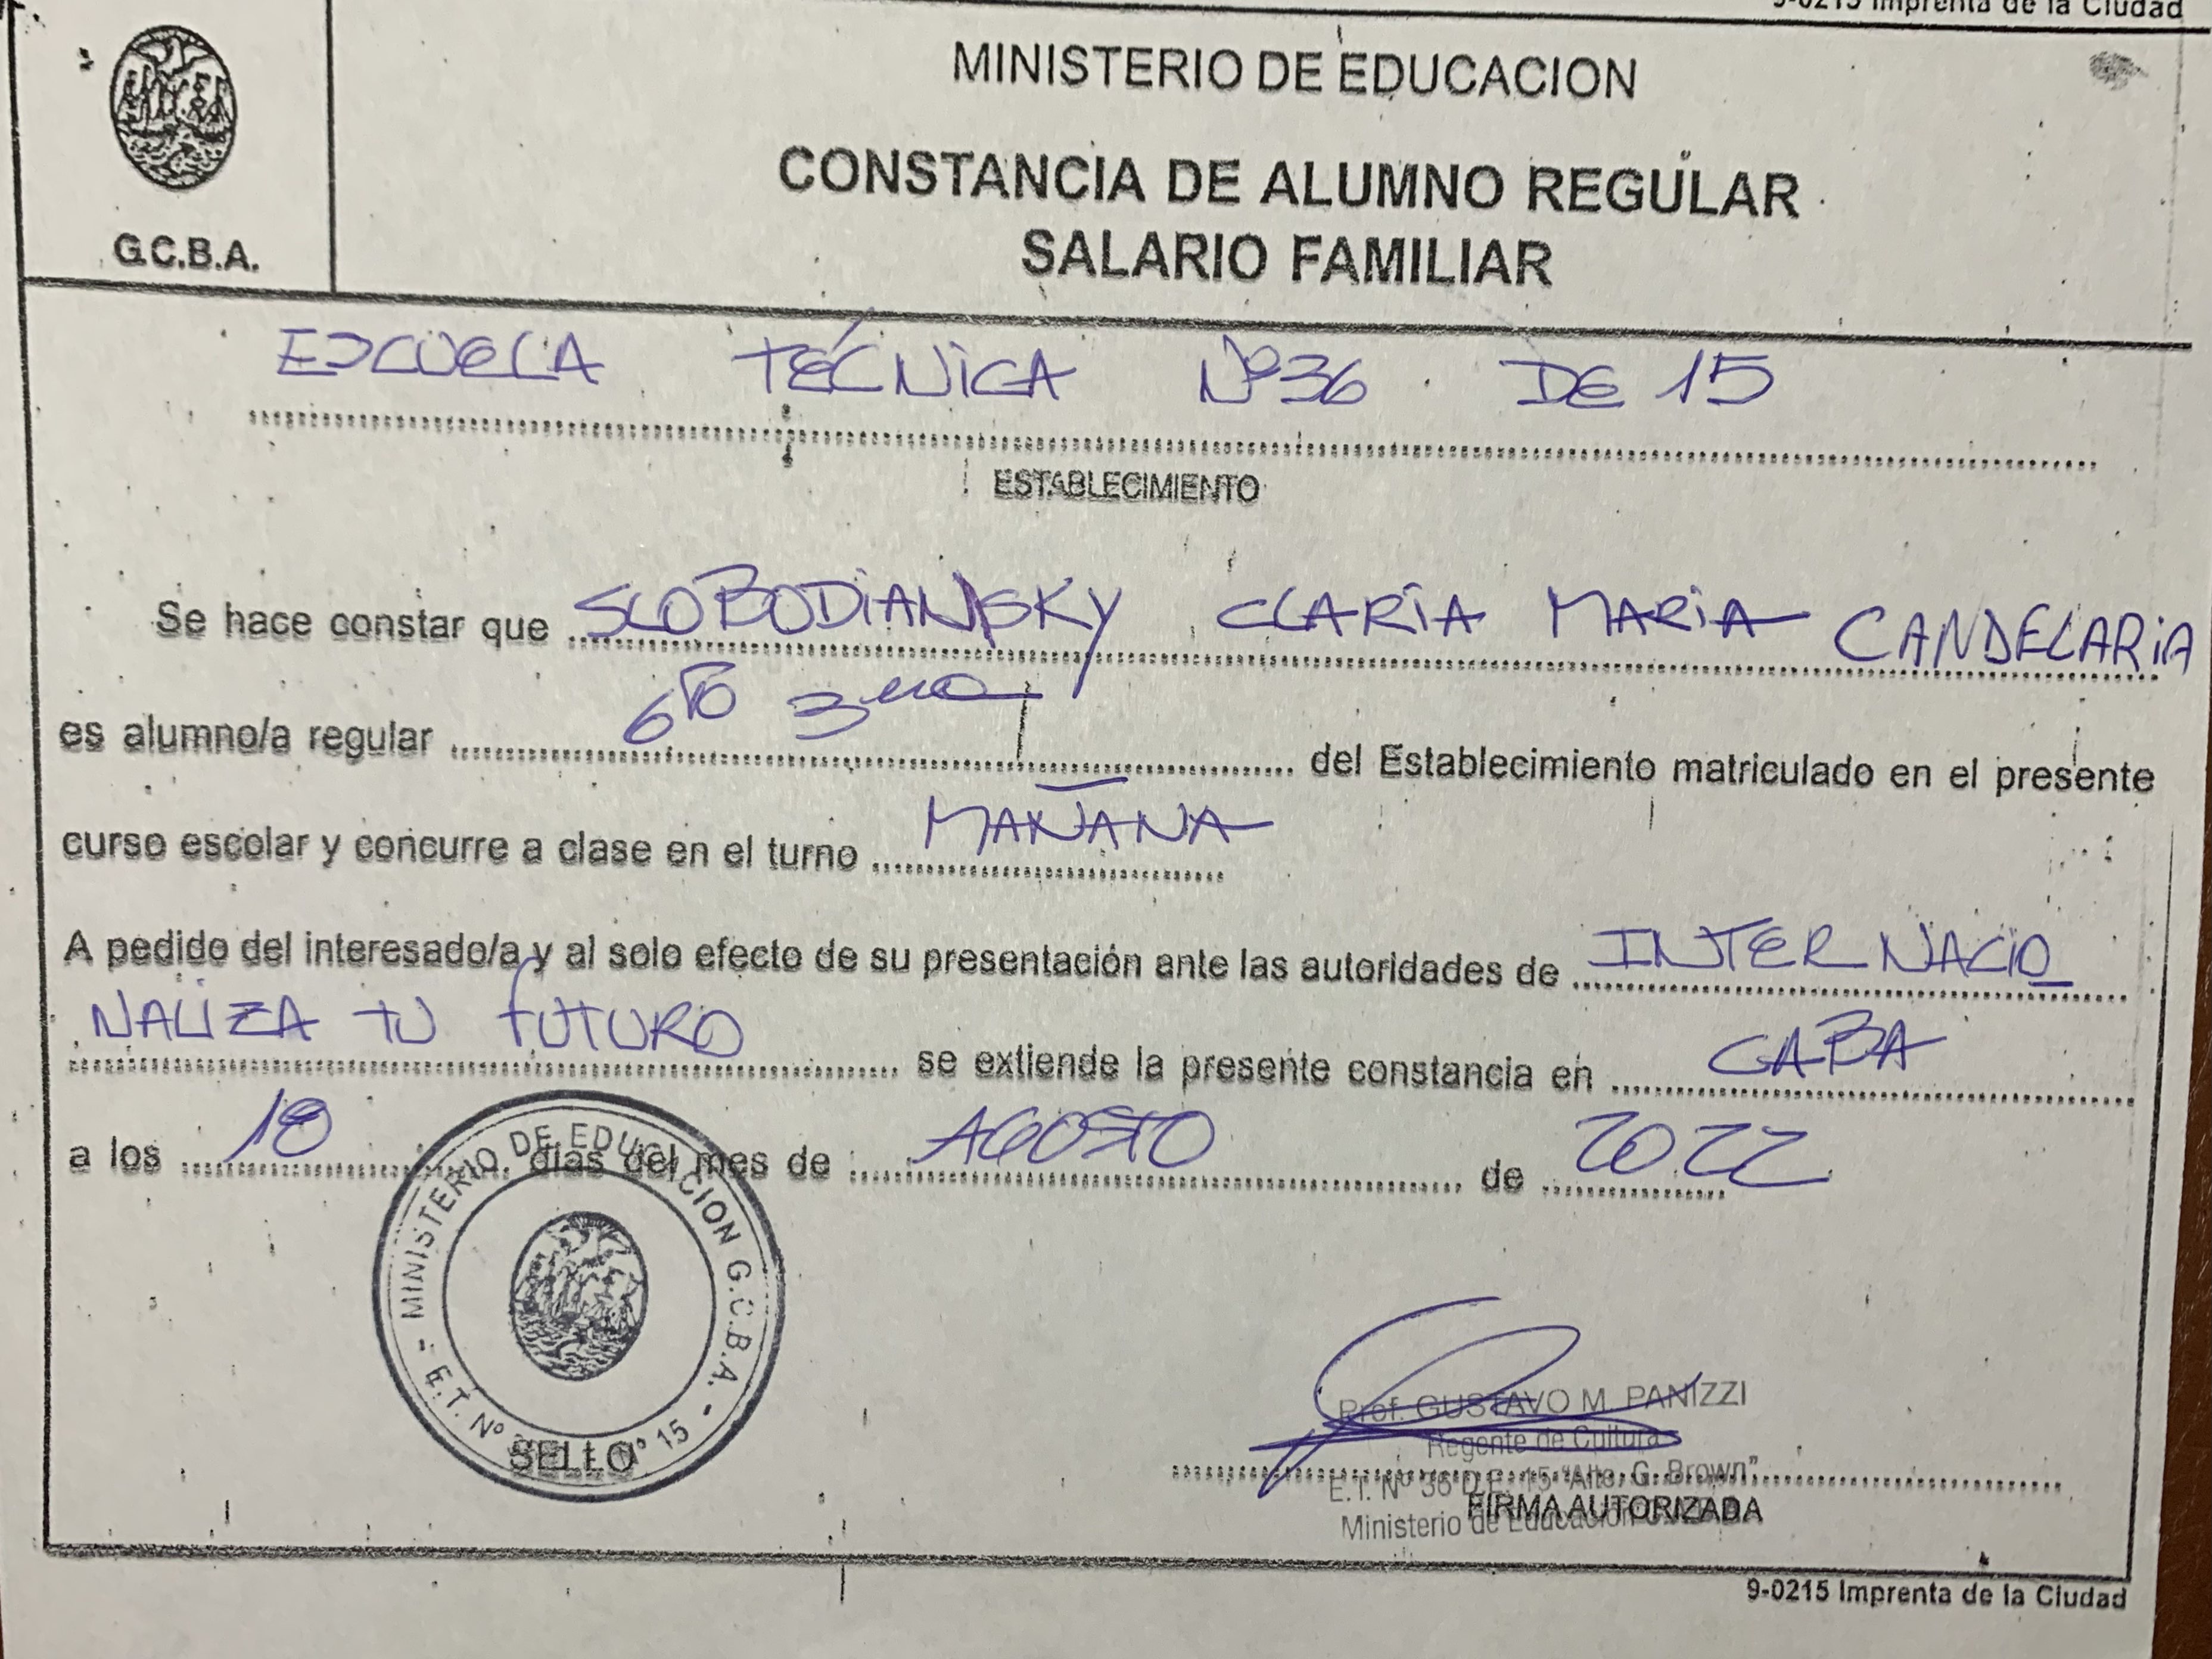 9-0215 Imprenta de la Ciudad
MINISTERIO DE EDUCACION
CONSTANCIA DE ALUMNO REGULAR
SALARIO FAMILIAR
G.C.B.A.
ESCUELA TÉCNICA Nº36 DE 15
ESTABLECIMIENTO
Se hace constar que SLOBODIANSKY CLARÍA MARIA CANDELARIA
es alumno/a regular 6to 3era del Establecimiento matriculado en el presente
curso escolar y concurre a clase en el turno MAÑANA
A pedido del interesado/a y al solo efecto de su presentación ante las autoridades de INTERNACIO
NALIZA TU FUTURO se extiende la presente constancia en CABA
a los 18 días del mes de AGOSTO de 2022
- MINISTERIO DE EDUCACION G.C.B.A. -
E.T. Nº 15
SELLO
Prof. GUSTAVO M. PANIZZI
Regente de Cultura
E.T. Nº 36 D.E. 15 "Alte. G. Brown"
FIRMA AUTORIZADA
Ministerio de Educación
9-0215 Imprenta de la Ciudad